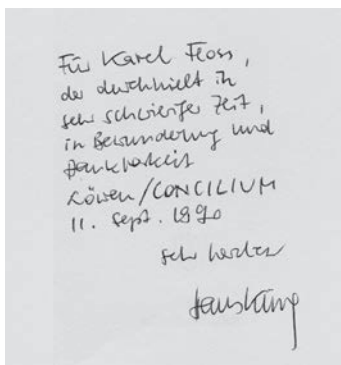 Für Karel Floss,
der durchhielt in
sehr schwieriger Zeit,
in Bewunderung und
Dankbarkeit
Löwen/CONCILIUM
11. Sept. 1990
sehr herzlich
Hans Küng